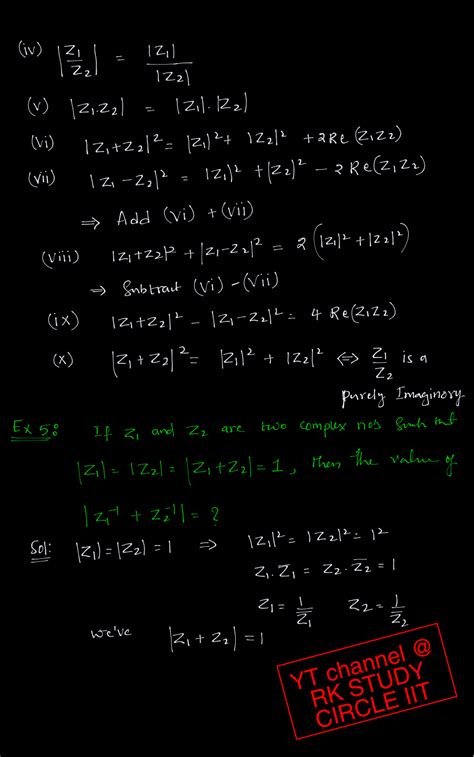 (iv) |Z₁/Z₂| = |Z₁|/|Z₂|
(v) |Z₁.Z₂| = |Z₁|.|Z₂|
(vi) |Z₁+Z₂|² = |Z₁|² + |Z₂|² + 2Re(Z₁Z₂)
(vii) |Z₁-Z₂|² = |Z₁|² + |Z₂|² - 2Re(Z₁Z₂)
⇒ Add (vi) + (vii)
(viii) |Z₁+Z₂|² + |Z₁-Z₂|² = 2(|Z₁|²+|Z₂|²)
⇒ Subtract (vi) - (vii)
(ix) |Z₁+Z₂|² - |Z₁-Z₂|² = 4 Re(Z₁Z₂)
(x) |Z₁+Z₂|² = |Z₁|² + |Z₂|² ⇔ Z₁/Z₂ is a
purely Imaginory
Ex 5: If Z₁ and Z₂ are two complex nos Such that
|Z₁| = |Z₂| = |Z₁+Z₂| = 1, then the value of
|Z₁⁻¹ + Z₂⁻¹| = ?
Sol: |Z₁| = |Z₂| = 1 ⇒ |Z₁|² = |Z₂|² = 1²
Z₁.Z̅₁ = Z₂.Z̅₂ = 1
Z₁ = 1/Z̅₁ Z₂ = 1/Z̅₂
we've |Z₁+Z₂| = 1
YT channel @
RK STUDY
CIRCLE IIT